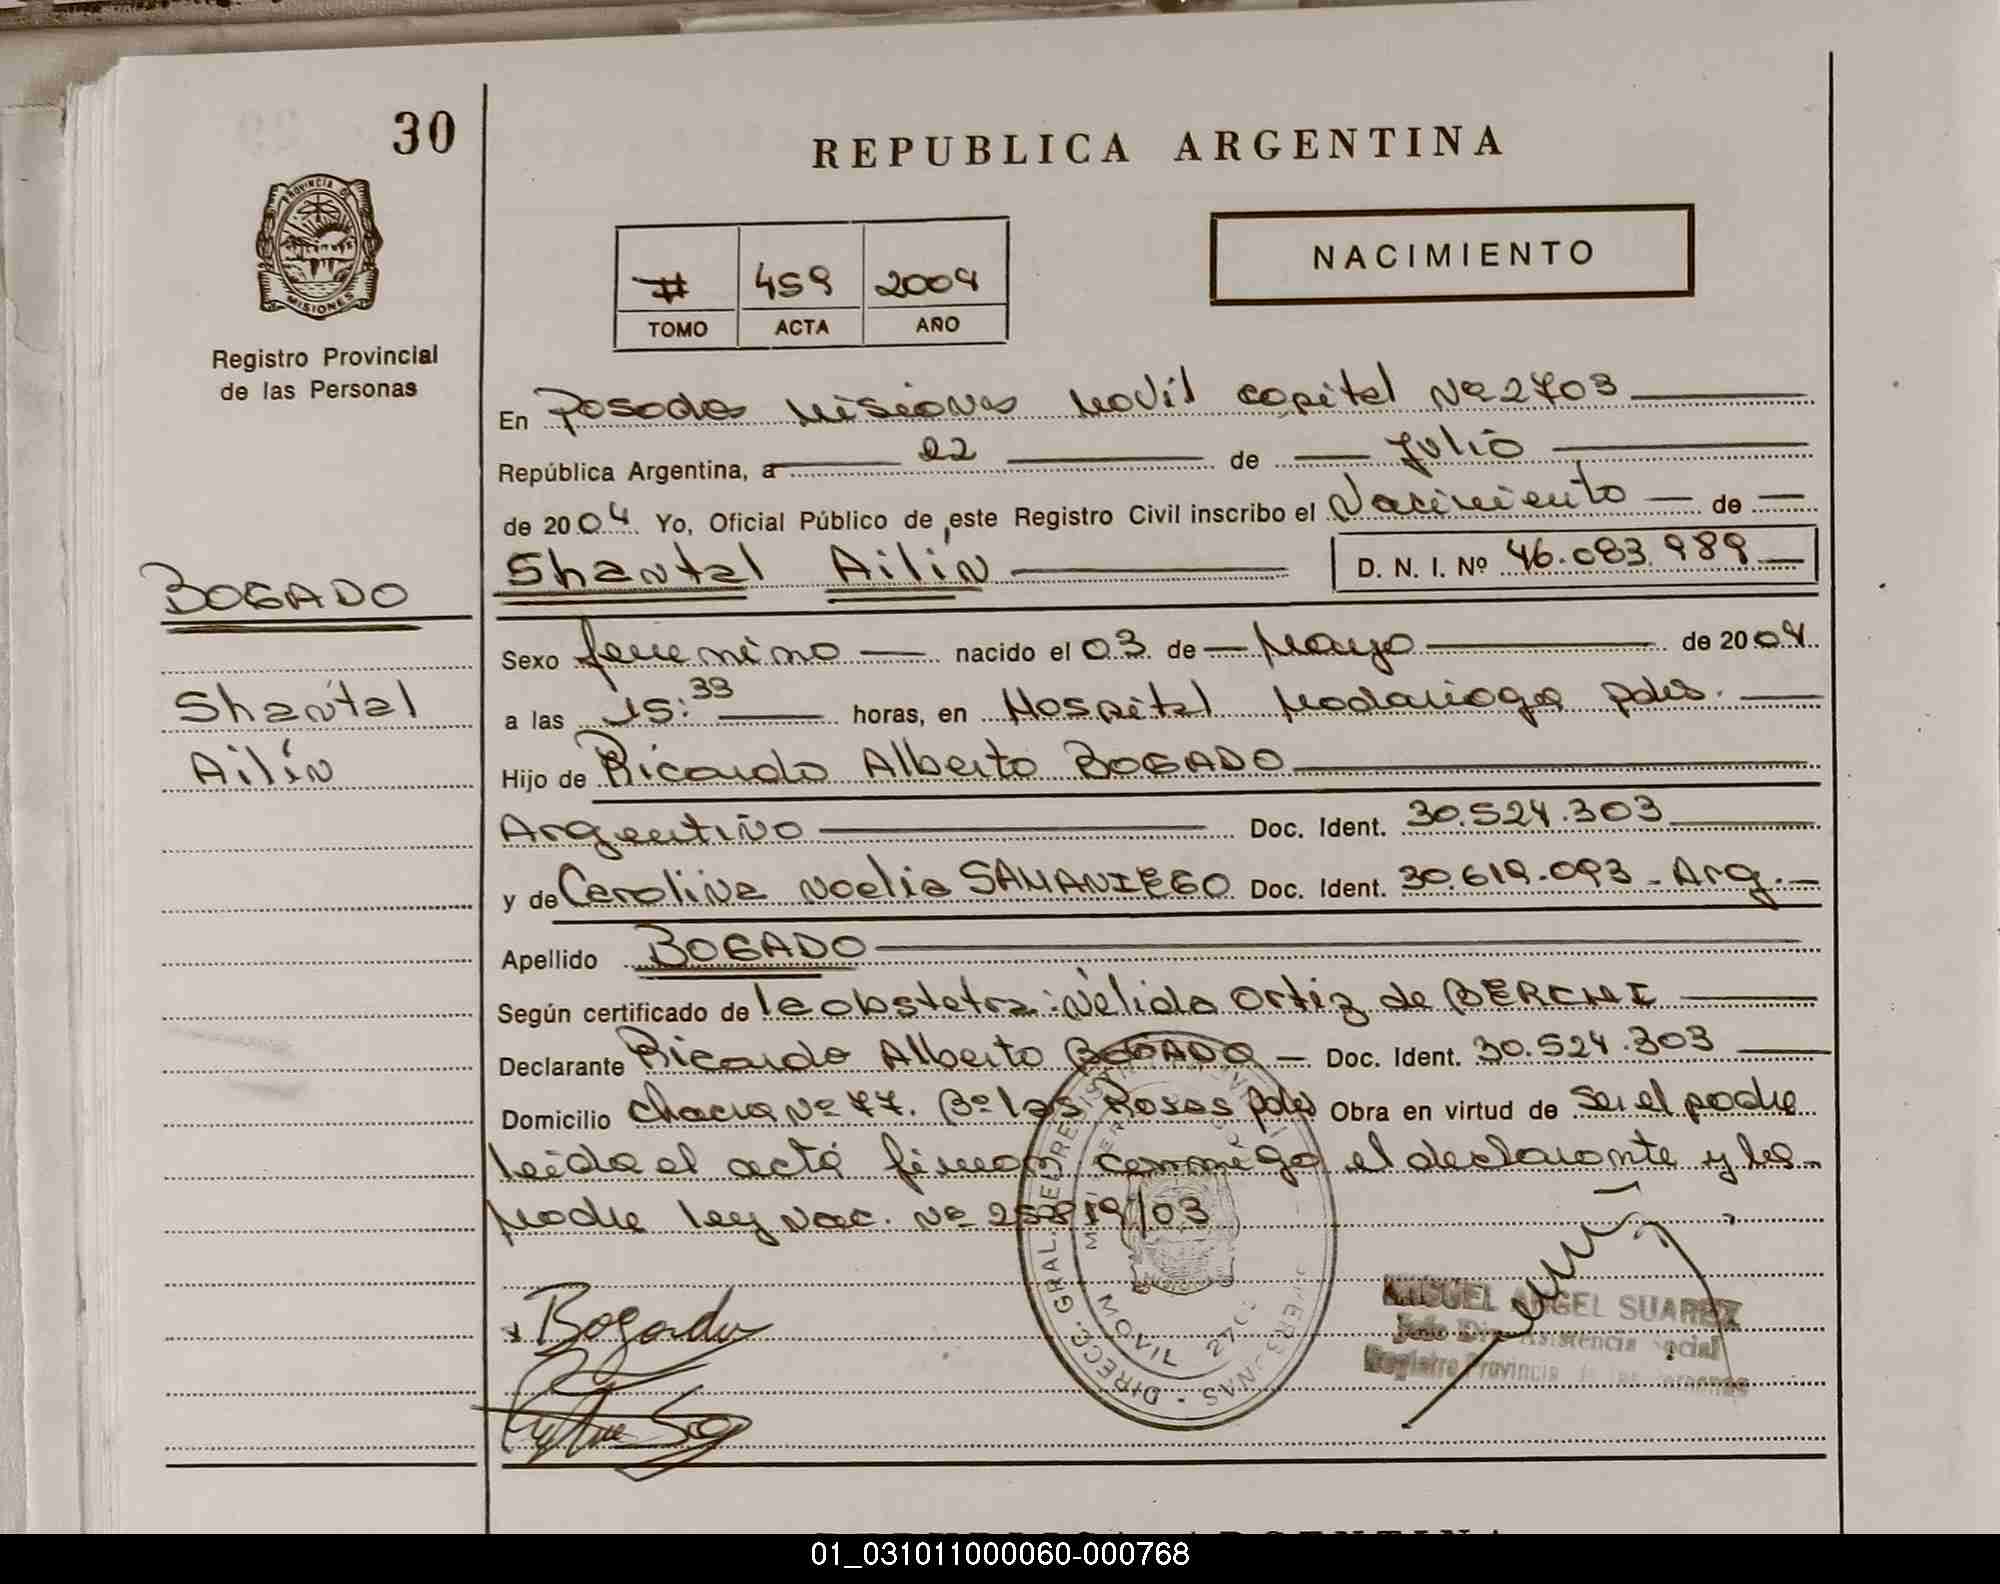 30
REPUBLICA ARGENTINA
PROVINCIA DE
MISIONES
Registro Provincial
de las Personas
NACIMIENTO
# 459 2004
TOMO ACTA AÑO
En Posadas Misiones Movil capital Nº 2703
República Argentina, a 22 de Julio
de 2004 Yo, Oficial Público de este Registro Civil inscribo el Nacimiento de
Shantal Ailín D. N. I. Nº 46.083.989
BOGADO
Shantal
Ailín
Sexo femenino nacido el 03 de Mayo de 2004
a las 15:33 horas, en Hospital Madariaga pdas.
Hijo de Ricardo Alberto BOGADO
Argentino Doc. Ident. 30.524.303
y de Carolina Noelia SAMANIEGO Doc. Ident. 30.619.093 - Arg.
Apellido BOGADO
Según certificado de la obstetra: Nélida Ortiz de BERCHI
Declarante Ricardo Alberto BOGADO Doc. Ident. 30.524.303
Domicilio chacra Nº 77. Bº las Rosas pdas Obra en virtud de ser el padre
leida el acta firman conmigo el declarante y la
madre ley Nac. Nº 25819/03
Bogado
DIRECC. GRAL.
MOVIL 2703
MIGUEL ANGEL SUAREZ
Jefe Dto. Asistencia Social
Registro Provincial de las Personas
01_031011000060-000768